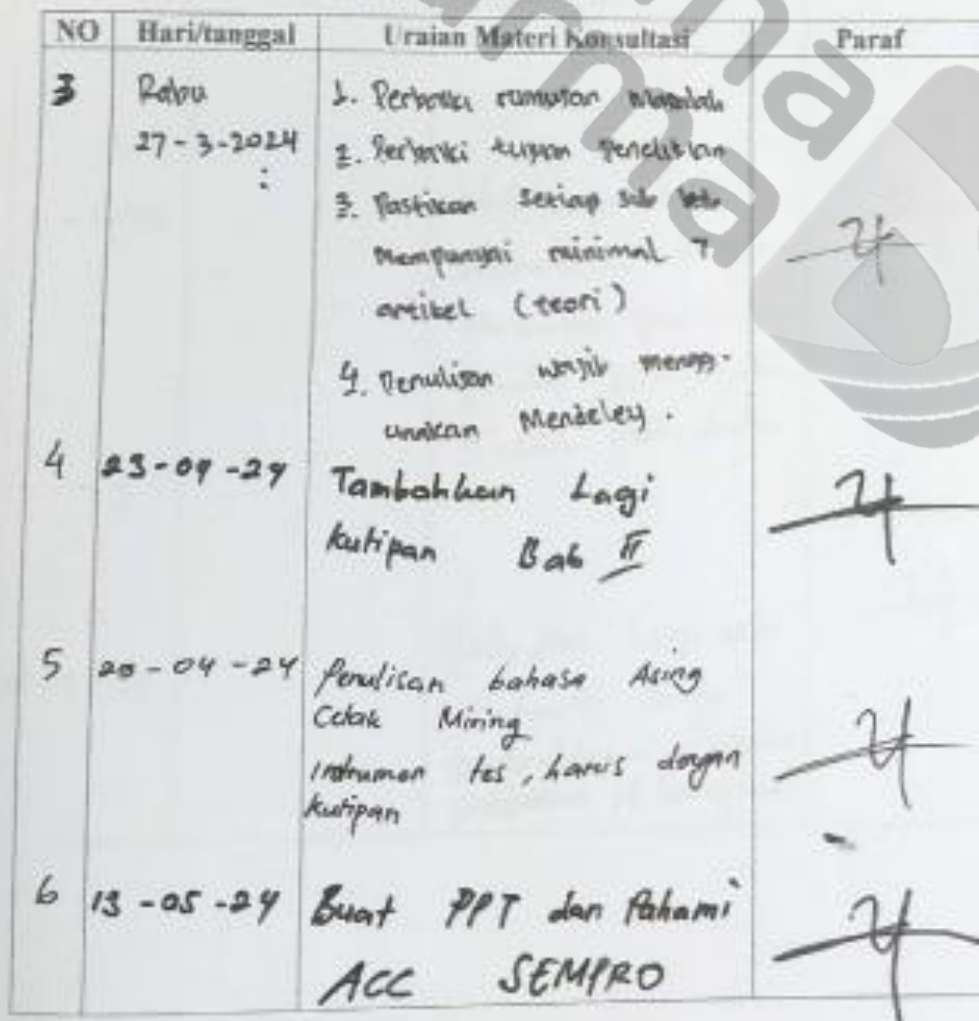 NO Hari/tanggal Uraian Materi Konsultasi Paraf
3 Rabu 1. Perbaiki rumusan Masalah
27-3-2024 2. Perbaiki tujuan Penelitian
: 3. Pastikan Setiap Sub
mempunyai minimal 7
artikel (teori)
4. Penulisan wajib mengg-
unakan Mendeley.
4 23-04-24 Tambahkan Lagi
kutipan Bab II
5 20-04-24 Penulisan bahasa Asing
Cetak Miring
Instrumen tes, harus dengan
kutipan
6 13-05-24 Buat PPT dan Pahami
ACC SEMPRO